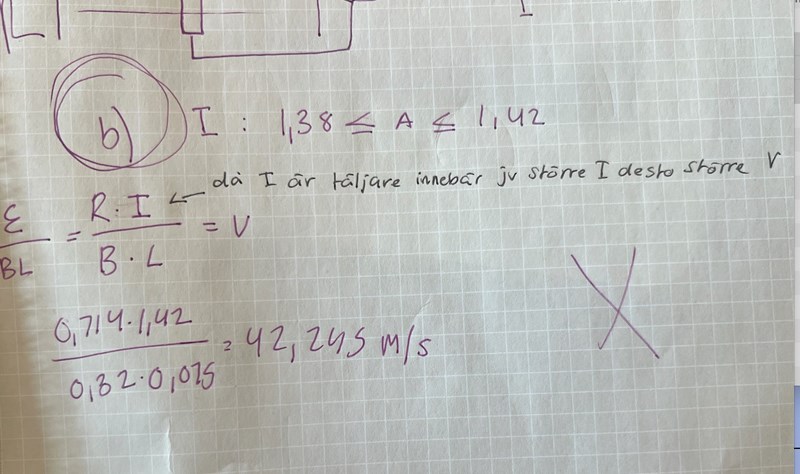 b) I : 1,38 ≤ A ≤ 1,42
då I är täljare innebär ju större I desto större V
ε/BL = R·I/B·L = V
0,714·1,42/0,32·0,075 = 42,245 m/s